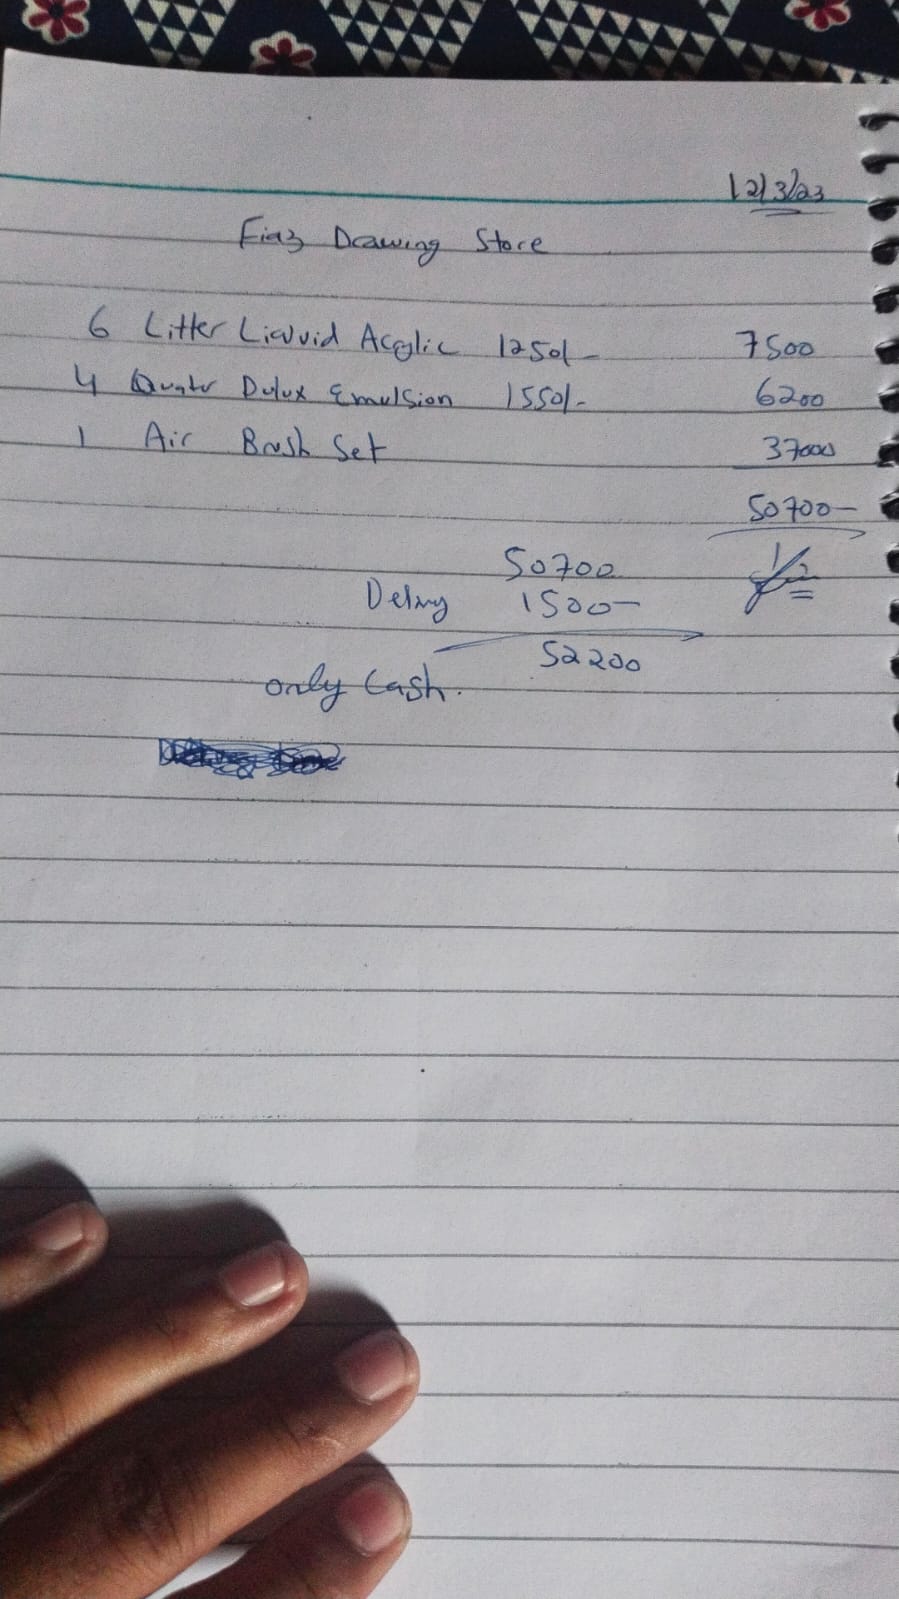 12/3/23
Fiaz Drawing Store
6 Litter Liquid Acrylic 1250/- 7500
4 Quater Dulux Emulsion 1550/- 6200
1 Air Brush Set 37000
50700-
50700
Delvry 1500-
52200
only Cash.